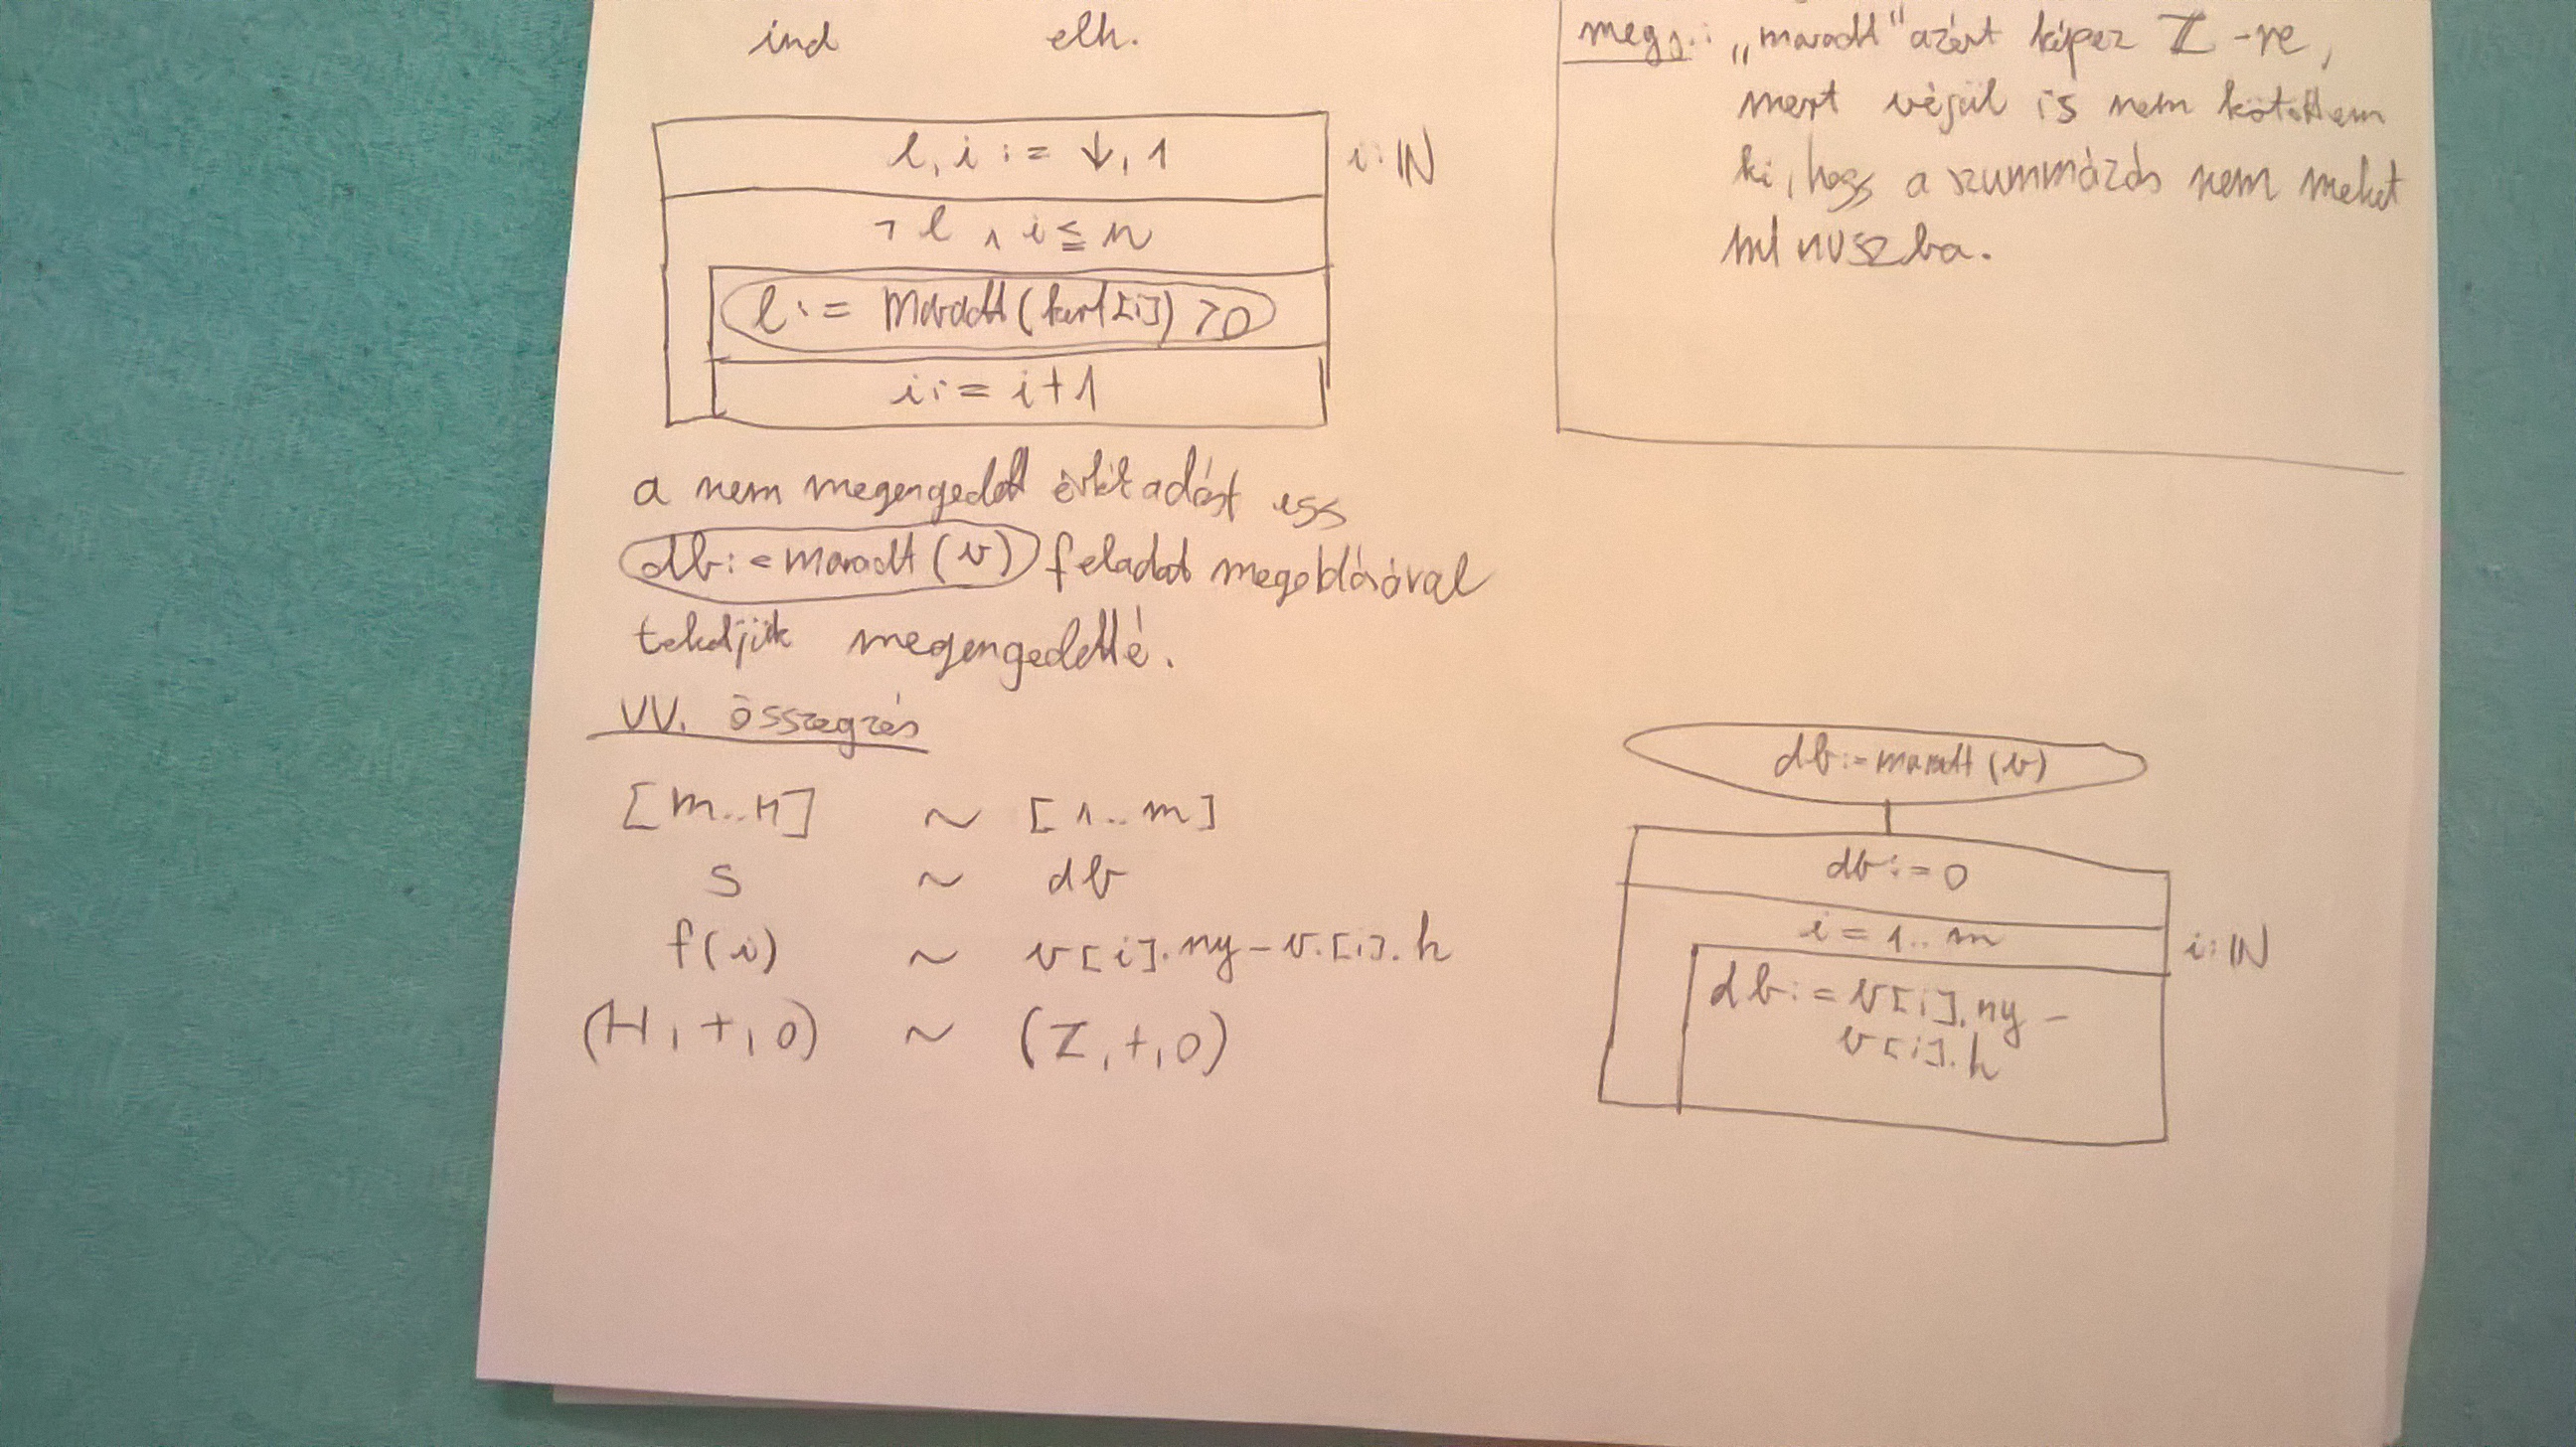 ind elh.
l, i := ↓, 1 i: ℕ
¬ l ∧ i ≦ n
l := Maradt(kert[i]) >0
i := i+1
a nem megengedett értékadást egy
db := maradt (v) feladat megoldásával
tekdjük megengedetté.
VV. összegzés
[m..n] ~ [1..m]
s ~ db
f(i) ~ v[i].ny-v.[i].h
(H,+,0) ~ (Z,+,0)
megj.: „maradt" azért képez Z-re,
mert végül is nem kötöttem
ki, hogy a szummázás nem mehet
mínuszba.
db:=maradt (v)
db:=0
i = 1..m i: ℕ
db:= v[i].ny-
v[i].h